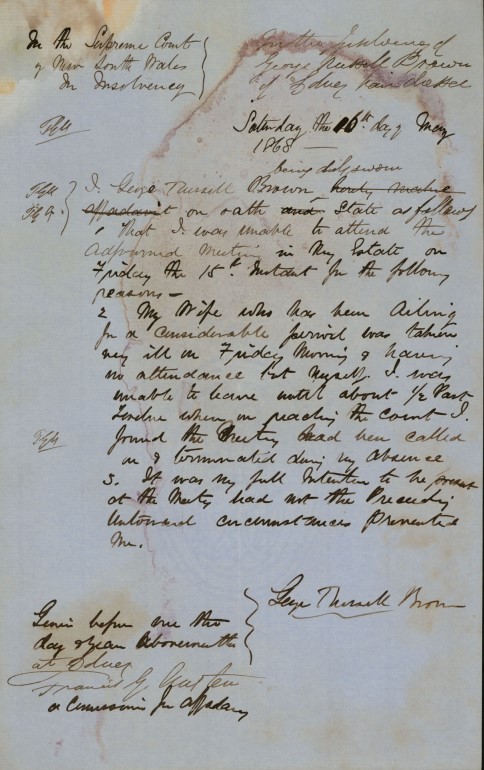 In the Supreme Court
of New South Wales
In Insolvency
In the Insolvency of
George Thursell Brown
of Sydney
Saturday the 16th day of May
1868 —
being duly sworn
I George Thursell Brown
affadavit on oath and State as follows
1 That I was unable to attend the
Adjourned Meeting in My Estate on
Friday the 15th Instant for the following
reasons —
2 My Wife who has been Ailing
for a considerable period was taken
very ill on Friday Morning & having
no attendance but Myself I was
unable to leave until about 1/2 Past
Twelve when on reaching the Court I
found the Meeting had been called
on & terminated during my absence
3. It was my full Intention to be present
at the Meeting had not the Preceding
Untoward circumstances Prevented
Me.
George Thursell Brown
before me the
day & year abovementd
at Sydney
Francis G
a Commissioner for affadavits